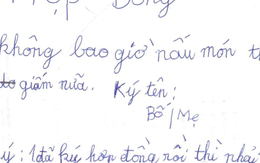 Hợp Đồng
không bao giờ nấu món
giấm nữa. Ký tên:
Bố/Mẹ
ý: 1 đã ký hợp đồng rồi thì phải